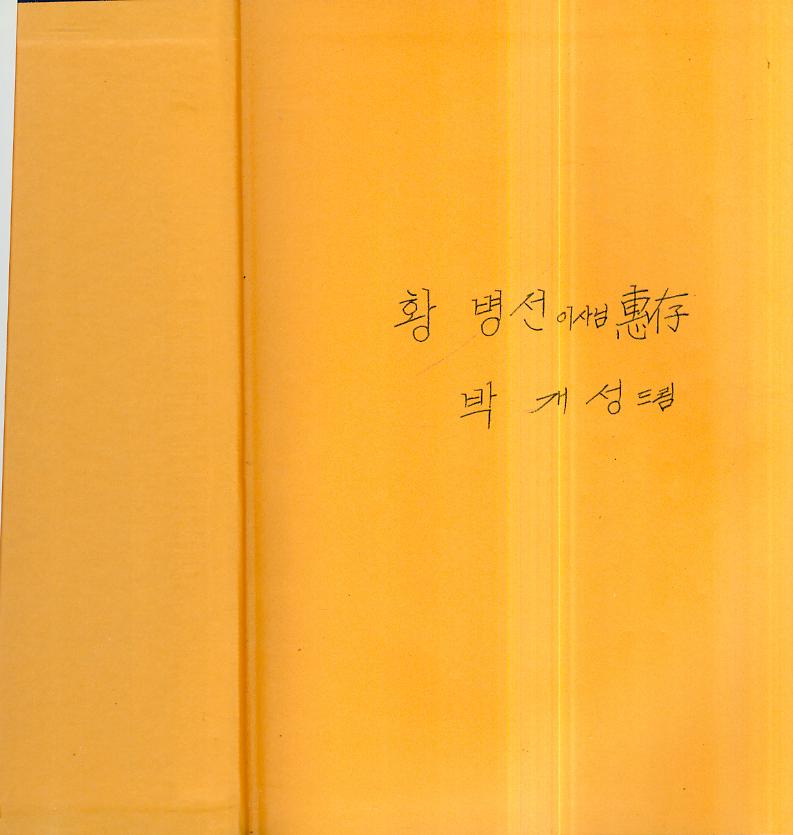 황 병선 이사님 惠存
박 개성 드림